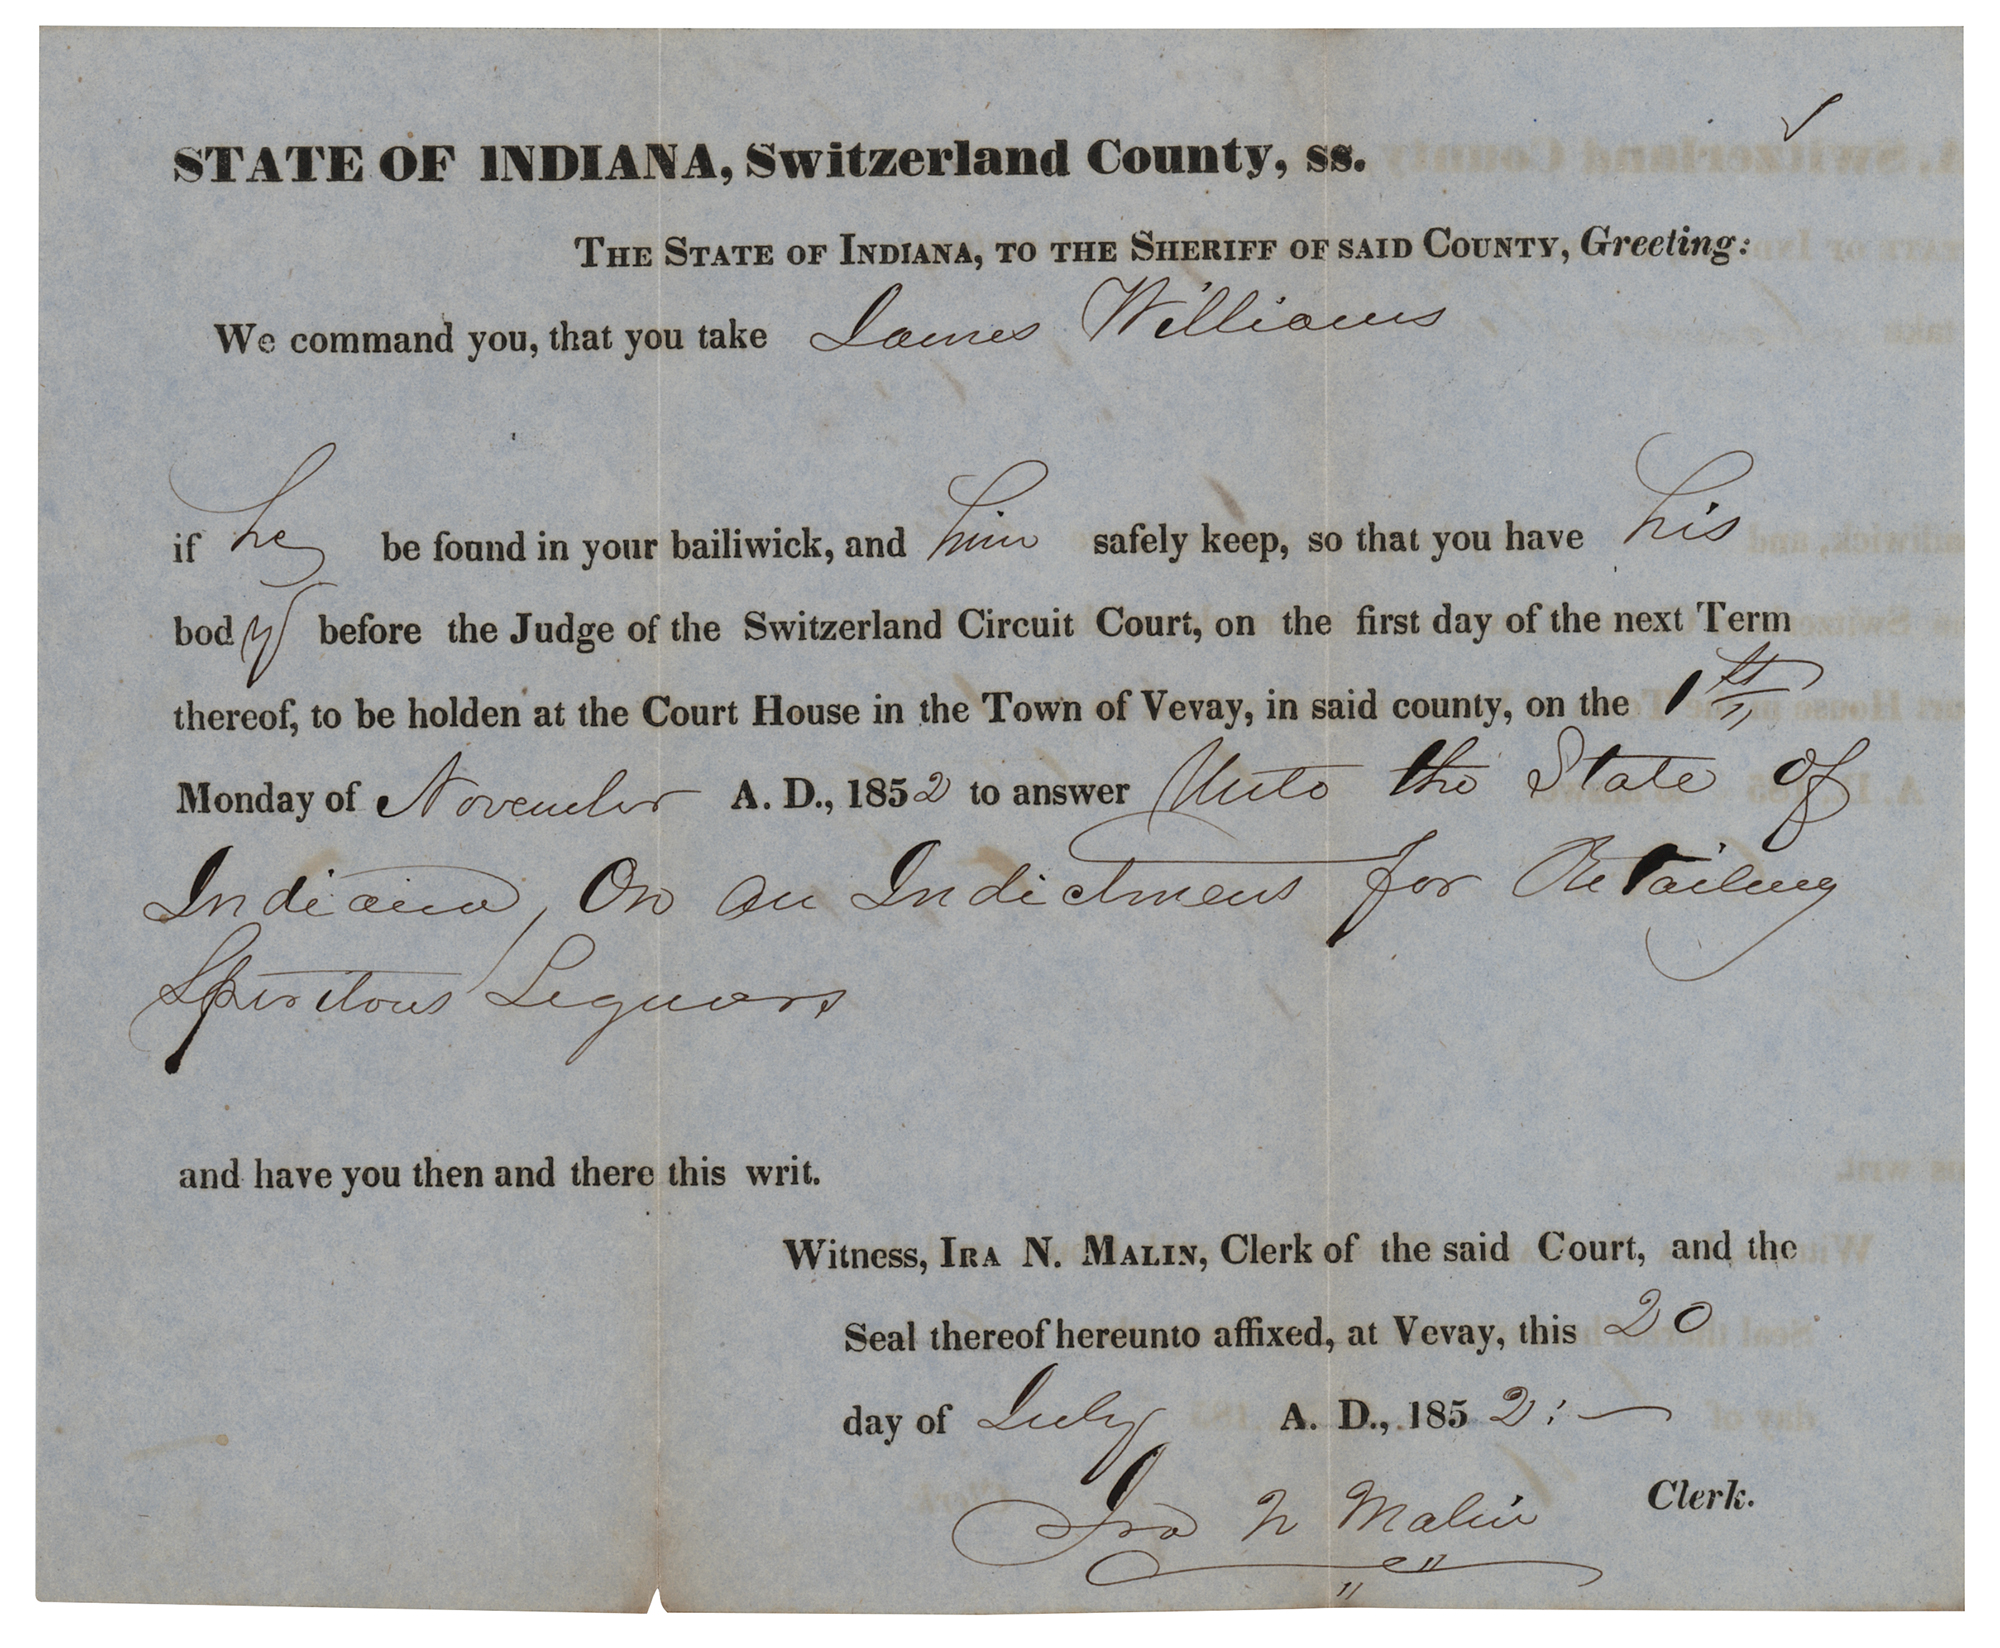 STATE OF INDIANA, Switzerland County, ss.
THE STATE OF INDIANA, TO THE SHERIFF OF SAID COUNTY, Greeting:
We command you, that you take James Williams
if he be found in your bailiwick, and him safely keep, so that you have his
body before the Judge of the Switzerland Circuit Court, on the first day of the next Term
thereof, to be holden at the Court House in the Town of Vevay, in said county, on the 1st
Monday of November A. D., 1852 to answer Unto the State of
Indiana, On an Indictment for Retailing
Spiritous Liquors
and have you then and there this writ.
Witness, IRA N. MALIN, Clerk of the said Court, and the
Seal thereof hereunto affixed, at Vevay, this 20
day of July A. D., 1852:—
Ira N Malin Clerk.